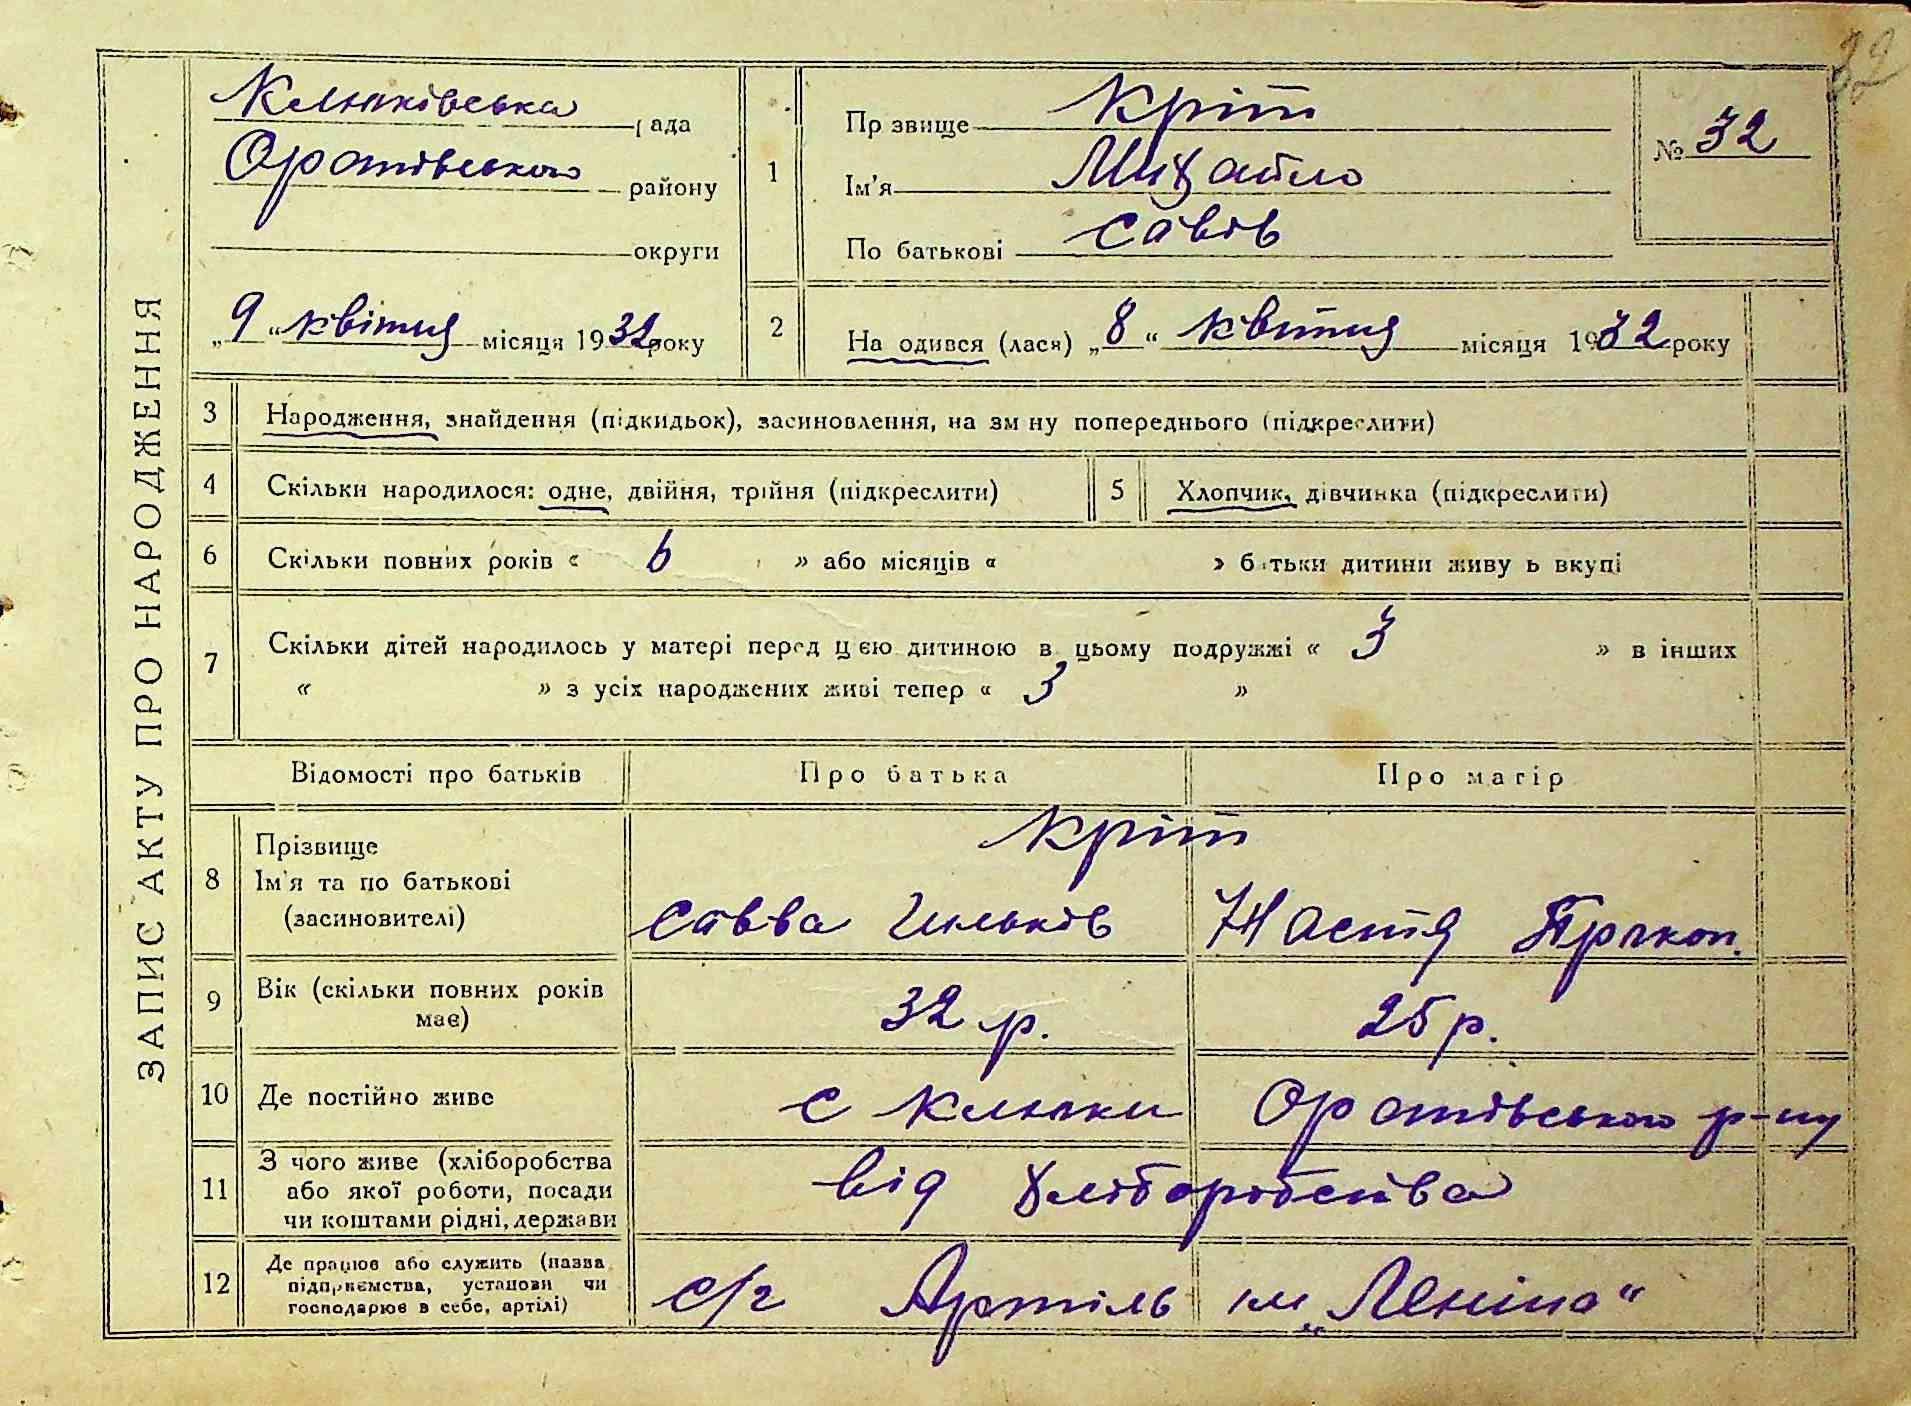 32
ЗАПИС АКТУ ПРО НАРОДЖЕННЯ
Клюківська рада
Оратівського району
округи
„9“ квітня місяця 1932 року
1
Прізвище Кріт
Ім'я Михайло
По батькові Савів
№ 32
2
Народився (лася) „8“ квітня місяця 1932 року
3 Народження, знайдення (підкидьок), засиновлення, на зміну попереднього (підкреслити)
4 Скільки народилося: одне, двійня, трійня (підкреслити)
5 Хлопчик, дівчинка (підкреслити)
6 Скільки повних років « 6 » або місяців « » батьки дитини живуть вкупі
7 Скільки дітей народилось у матері перед цією дитиною в цьому подружжі « 3 » в інших
« » з усіх народжених живі тепер « 3 »
Відомості про батьків Про батька Про матір
8 Прізвище
Ім'я та по батькові
(засиновителі)
Кріт
Савва Ільків Настя Прокоп.
9 Вік (скільки повних років
має)
32 р. 25 р.
10 Де постійно живе с Клюки Оратівського р-ну
11 З чого живе (хліборобства
або якої роботи, посади
чи коштами рідні, держави
від хліборобства
12 Де працює або служить (назва
підприємства, установи чи
господарює в себе, артілі)
с/г Артіль ім „Леніна“